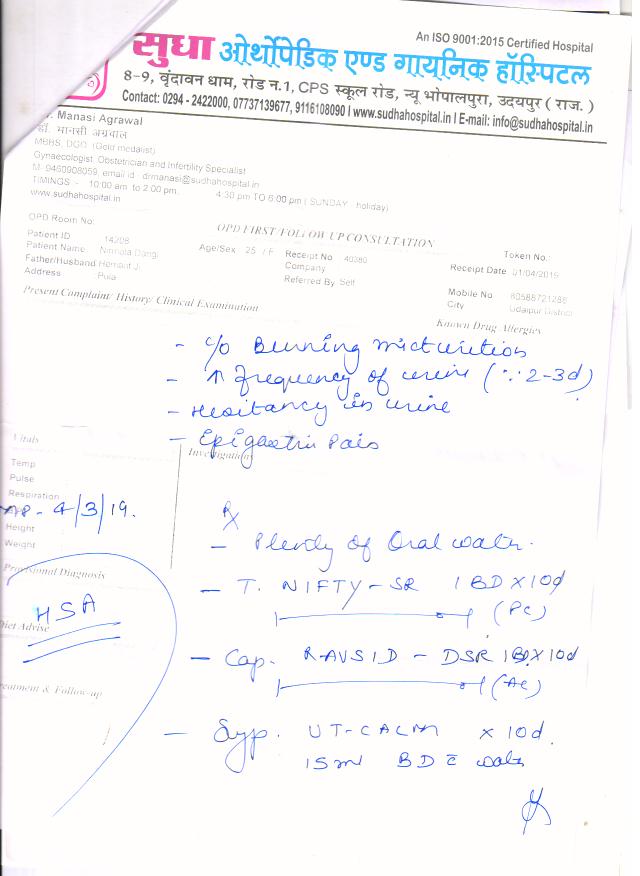 An ISO 9001:2015 Certified Hospital
सुधा ओर्थोपेडिक एण्ड गायनिक हॉस्पिटल
8-9, वृंदावन धाम, रोड न.1, CPS स्कूल रोड, न्यू भोपालपुरा, उदयपुर ( राज. )
Contact: 0294 - 2422000, 07737139677, 9116108090 l www.sudhahospital.in l E-mail: info@sudhahospital.in
Manasi Agrawal
डॉ. मानसी अग्रवाल
MBBS, DGO (Gold medalist)
Gynaecologist, Obstetrician and Infertility Specialist
M- 9460908059, email id - drmanasi@sudhahospital.in
TIMINGS - 10:00 am to 2:00 pm. 4:30 pm TO 6:00 pm ( SUNDAY - holiday)
www.sudhahospital.in
OPD Room No: OPD FIRST/FOLLOW UP CONSULTATION Token No.:
Patient ID 14208 Age/Sex : 25 / F Receipt No 40380 Receipt Date 01/04/2019
Patient Name: Nirmala Dangi Company
Father/Husband Hemant J. Referred By Self Mobile No 80588721286
Address Pula City Udaipur District
Present Complaint/ History/ Clinical Examination Known Drug Allergies
- c/o Burning micturition
- ↑ frequency of urine (∵ 2-3d)
- Hesitancy in urine
- Epigastric Pain
Vitals Investigations
Temp
Pulse
Respiration
- 4/3/19.
Height
Weight
Provisional Diagnosis
HSA
Diet Advise
Treatment & Follow-up
℞
- Plenty of Oral water.
- T. NIFTY-SR 1 BD x 10d
(PC)
- Cap. RAVSID - DSR 1BD x 10d
(AC)
- Syp. UT-CALM x 10d.
15ml BD c̄ water